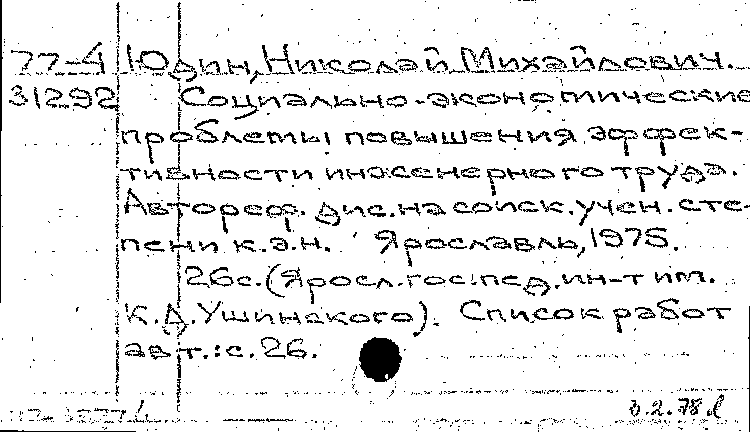 77-4 Юдин, Николай Михайлович.
31292 Социально-экономические
проблемы повышения эффек-
тивности инженерного труда.
Автореф. дис. на соиск. учен. сте-
пени к.э.н. Ярославль, 1975.
26с. (Яросл. гос. пед. ин-т им.
К.Д. Ушинского). Список работ
авт.: с. 26.
3.2.78